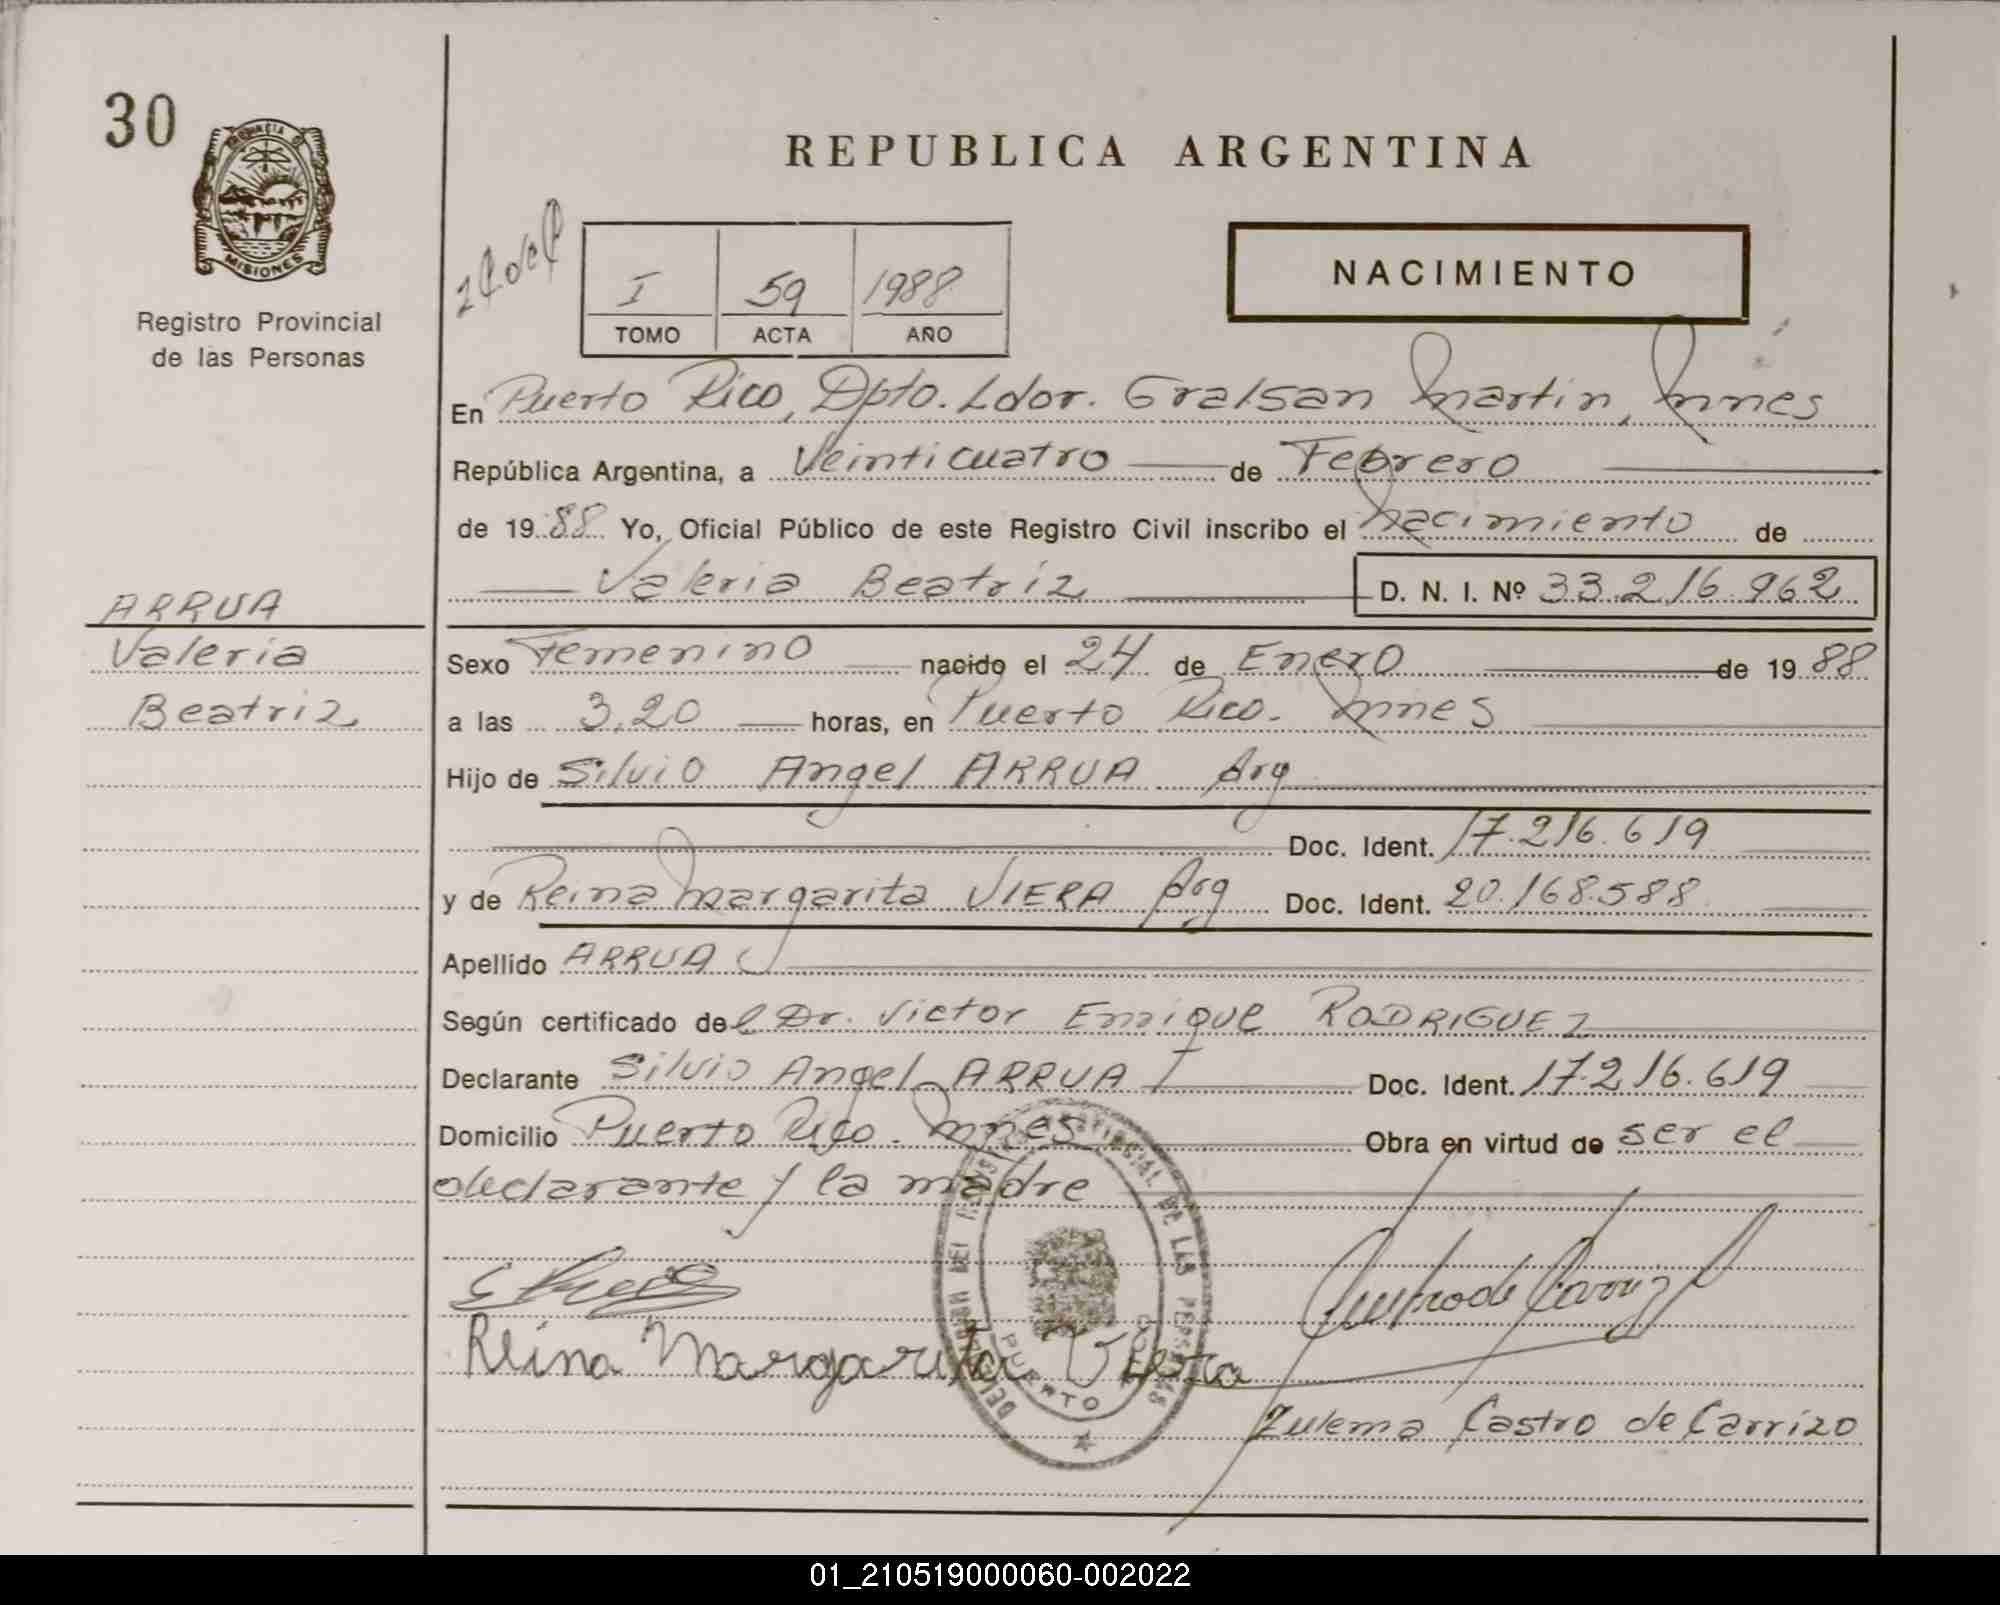 30
PROVINCIA D
MISIONES
Registro Provincial
de las Personas
REPUBLICA ARGENTINA
I 59 1988
TOMO ACTA AÑO
NACIMIENTO
En Puerto Rico, Dpto. Ldor. Gral San Martin, Mnes
República Argentina, a Veinticuatro de Febrero
de 1988 Yo, Oficial Público de este Registro Civil inscribo el Nacimiento de
Valeria Beatriz D. N. I. Nº 33.216.962
ARRUA
Valeria
Beatriz
Sexo Femenino nacido el 24 de Enero de 1988
a las 3,20 horas, en Puerto Rico. Mnes
Hijo de Silvio Angel ARRUA Arg
Doc. Ident. 17.216.619
y de Reina Margarita VIERA Arg Doc. Ident. 20.168.588
Apellido ARRUA
Según certificado del Dr. Victor Enrique RODRIGUEZ
Declarante Silvio Angel ARRUA Doc. Ident. 17.216.619
Domicilio Puerto Rico. Mnes Obra en virtud de ser el
declarante y la madre
DE LAS PERSONAS
PUERTO
Reina Margarita Viera
Zulema Castro de Carrizo
01_210519000060-002022